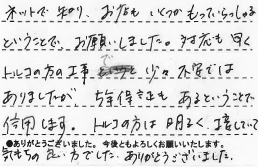 ネットで知り、お店もいくつかもっていらっしゃる
ということで、お願いしました。対応も早く
トルコの方の工事で 少々不安では
ありましたが 5年保証もあるということで
信用します。トルコの方は明るく 接していて
●ありがとうございました。今後ともよろしくお願いいたします。
気もちの良い方でした。ありがとうございました。